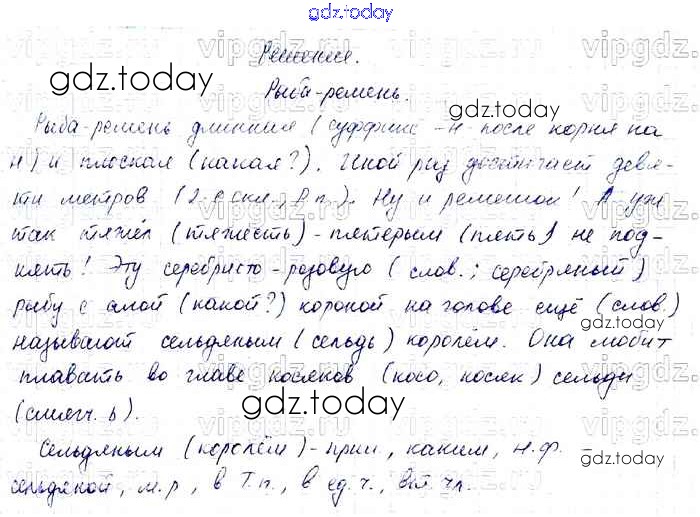 gdz.today
Решение.
Рыба-ремень.
Рыба-ремень длинная (суффикс -н- после корня на
н) и плоская (какая?). Иной раз достигает девя-
ти метров (2-е скл., Р.п.). Ну и ремешок! А уж
так тяжёл (тяжесть) - пятерым (пять) не под-
нять! Эту серебристо-розовую (слов.; серебряный)
рыбу с алой (какой?) короной на голове ещё (слов.)
называют сельдяным (сельдь) королём. Она любит
плавать во главе косяков (косо, косяк) сельди
(смягч. ь).
Сельдяным (королём) - прил., каким, н.ф.
сельдяной, м.р., в Т.п., в ед.ч., вт. чл.
gdz.today
gdz.today
gdz.today
gdz.today
gdz.today
gdz.today
gdz.today